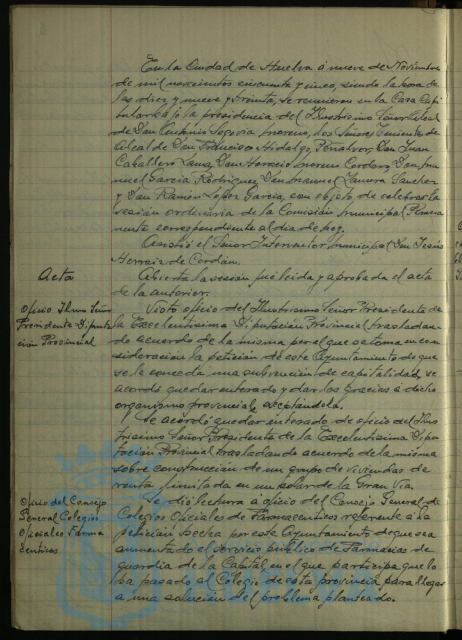 En la Ciudad de Huelva a nueve de Noviembre
de mil novecientos cincuenta y cinco, siendo la hora de
las diez y nueve y treinta, se reunieron en la Casa Capi
tular bajo la presidencia del Ilustrisimo Señor Alcal
de Don Antonio Segovia Moreno, los Señores Tenientes de
Alcalde Don Francisco Hidalgo Peñalver, Don Juan
Caballero Don Horacio Moreno Cordon, Don Ma
nuel Garcia Rodriguez, Don Manuel Zamora Sanchez
y Don Ramón Lopez Garcia, con objeto de celebrar la
sesión ordinaria de la Comisión Municipal Perma
nente correspondiente al dia de hoy.
Asistió el Señor Interventor Municipal Don Jesús
de Cordan.
Acta
Abierta la sesión fué leida y aprobada el acta
de la anterior.
Oficio Iltmo Señor
Presidente Diputa
ción Provincial
Visto oficio del Ilustrisimo Señor Presidente de
la Excelentisima Diputación Provincial trasladan
do acuerdo de la misma por el que se toma en con
sideración la petición de este Ayuntamiento de que
se le conceda una subvención de capitalidad, se
acordó quedar enterado y dar las gracias a dicho
organismo provincial, aceptandola.
Se acordó quedar enterado de oficio del Ilus
trisimo Señor Presidente de la Excelentisima Dipu
tación Provincial trasladando acuerdo de la misma
sobre construcción de un grupo de viviendas de
renta limitada en un solar de la Gran Via.
Oficio del Consejo
General Colegios
Oficiales Farma
ceuticos
Se dió lectura a oficio del Consejo General de
Colegios Oficiales de Farmaceuticos referente a la
petición hecha por este Ayuntamiento de que sea
aumentado el servicio publico de Farmacias de
guardia de la Capital, en el que participa que lo
ha pasado al Colegio de esta provincia para llegar
a una solución del problema planteado.